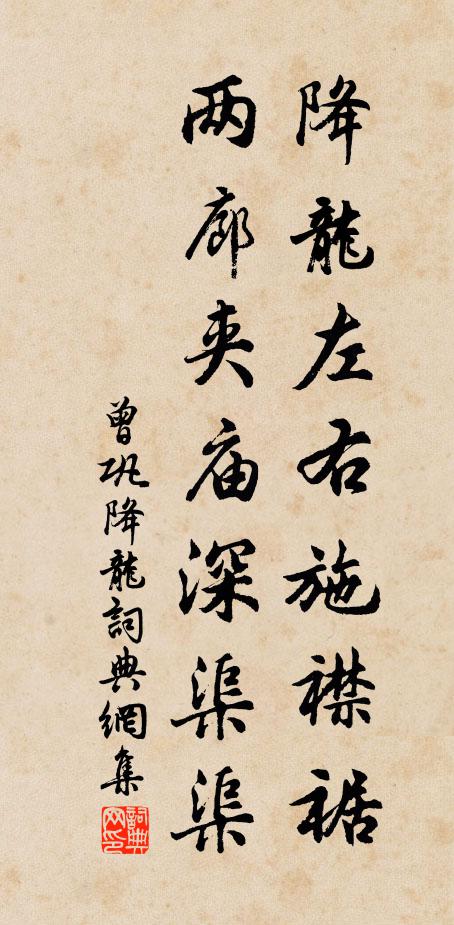 降龍左右施襟裾
两廊夹庙深渠渠
曾巩降龍詞典網集
詞典网印